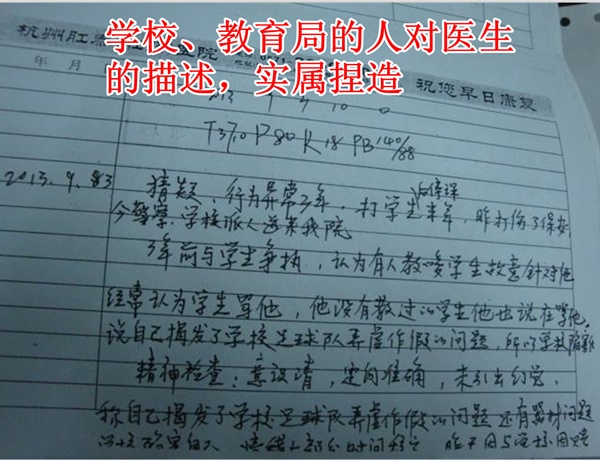 学校、教育局的人对医生
的描述，实属捏造
杭州
医院
祝您早日康复
年 月
T37.0 P80 R18 PB140/88
2013.9.
猜疑、行为异常3年，打学生半年，昨打伤了保安，
后停课
今警察、学校派人送来我院
3年前与学生争执，认为有人教唆学生故意针对他
经常认为学生骂他，他没有教过的学生他也说在骂他。
说自己揭发了学校足球队弄虚作假的问题，所以学校陷害他
精神检查：意识清，定向准确，未引出幻觉
称自己揭发了学校足球队弄虚作假的问题 还有器材问题